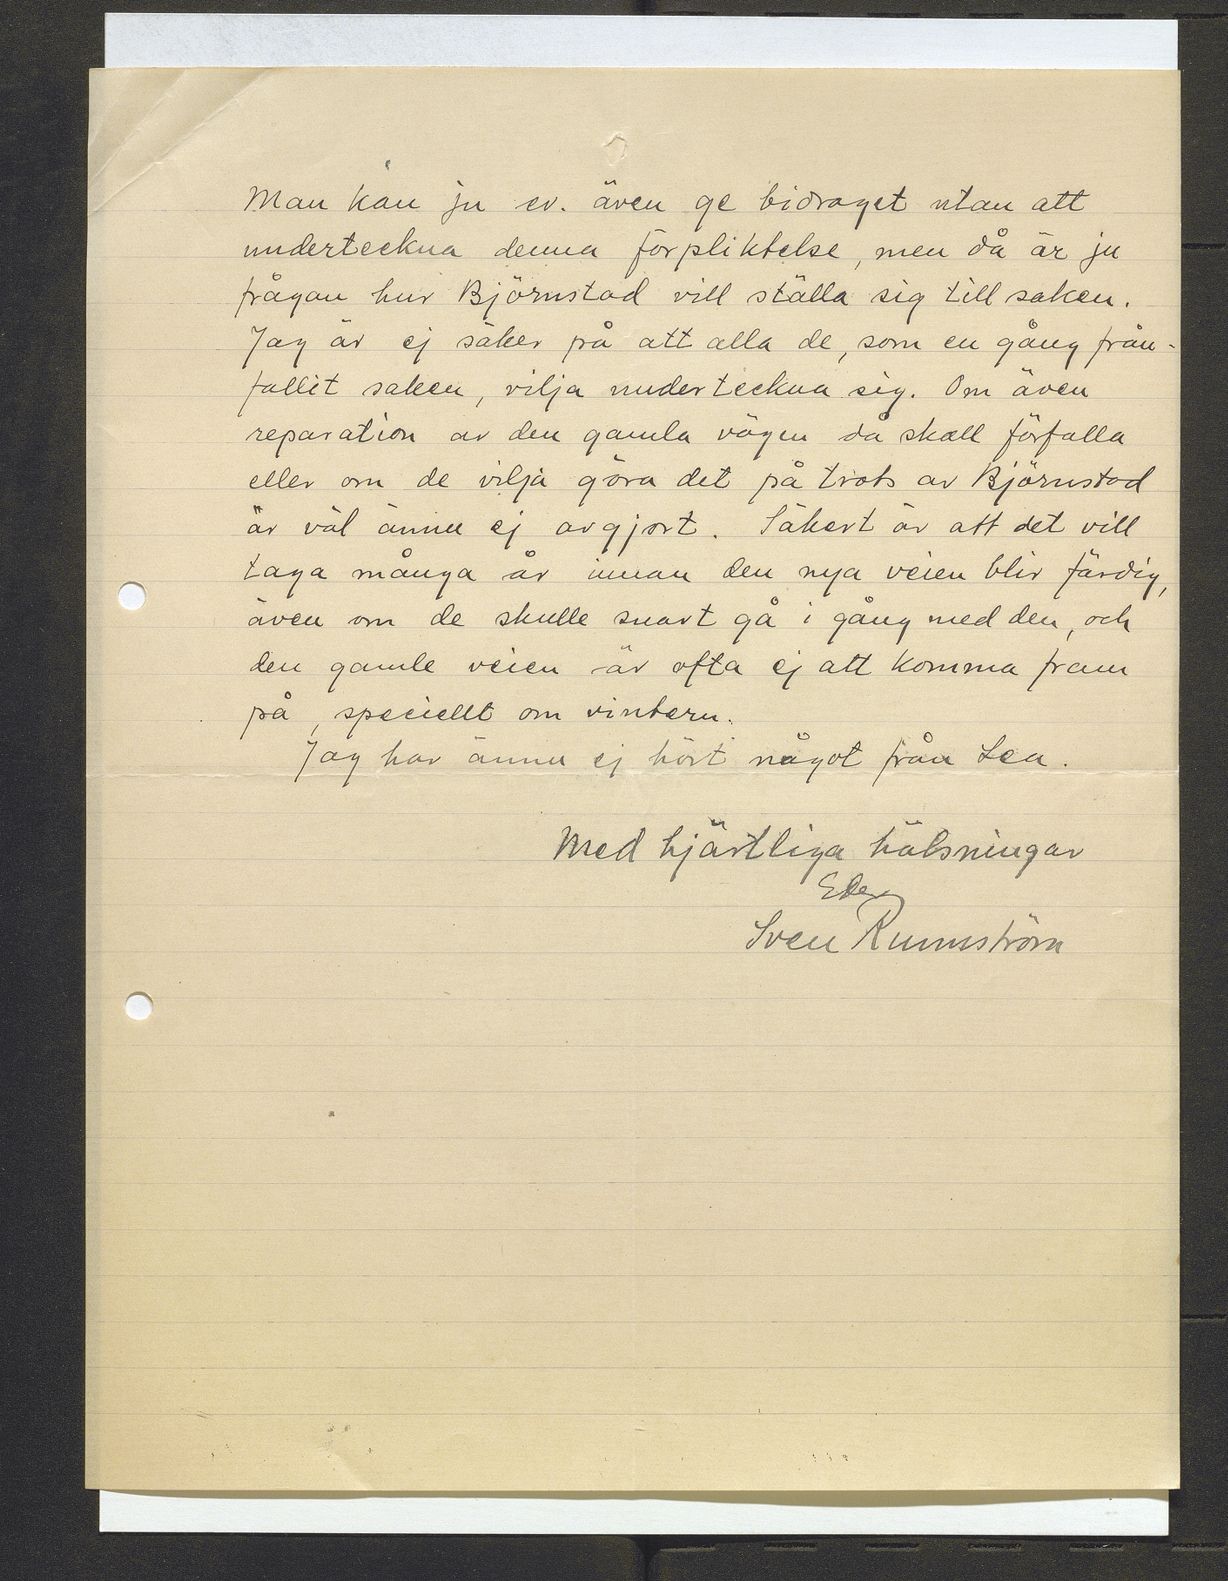 Man kan ju ev. även ge bidraget utan att
underteckna denna förpliktelse, men då är ju
frågan hur Björnstad vill ställa sig till saken.
Jag är ej säker på att alla de, som en gång från-
fallit saken, vilja underteckna sig. Om även
reparation av den gamla vägen då skall förfalla
eller om de vilja göra det på trots av Björnstad
är väl ännu ej avgjort. Säkert är att det vill
taga många år innan den nya veien blir färdig,
även om de skulle snart gå i gång med den, och
den gamle veien är ofta ej att komma fram
på, speciellt om vintern.
Jag har ännu ej hört något från Lea.
Med hjärtliga hälsningar
Eder
Sven Runnström